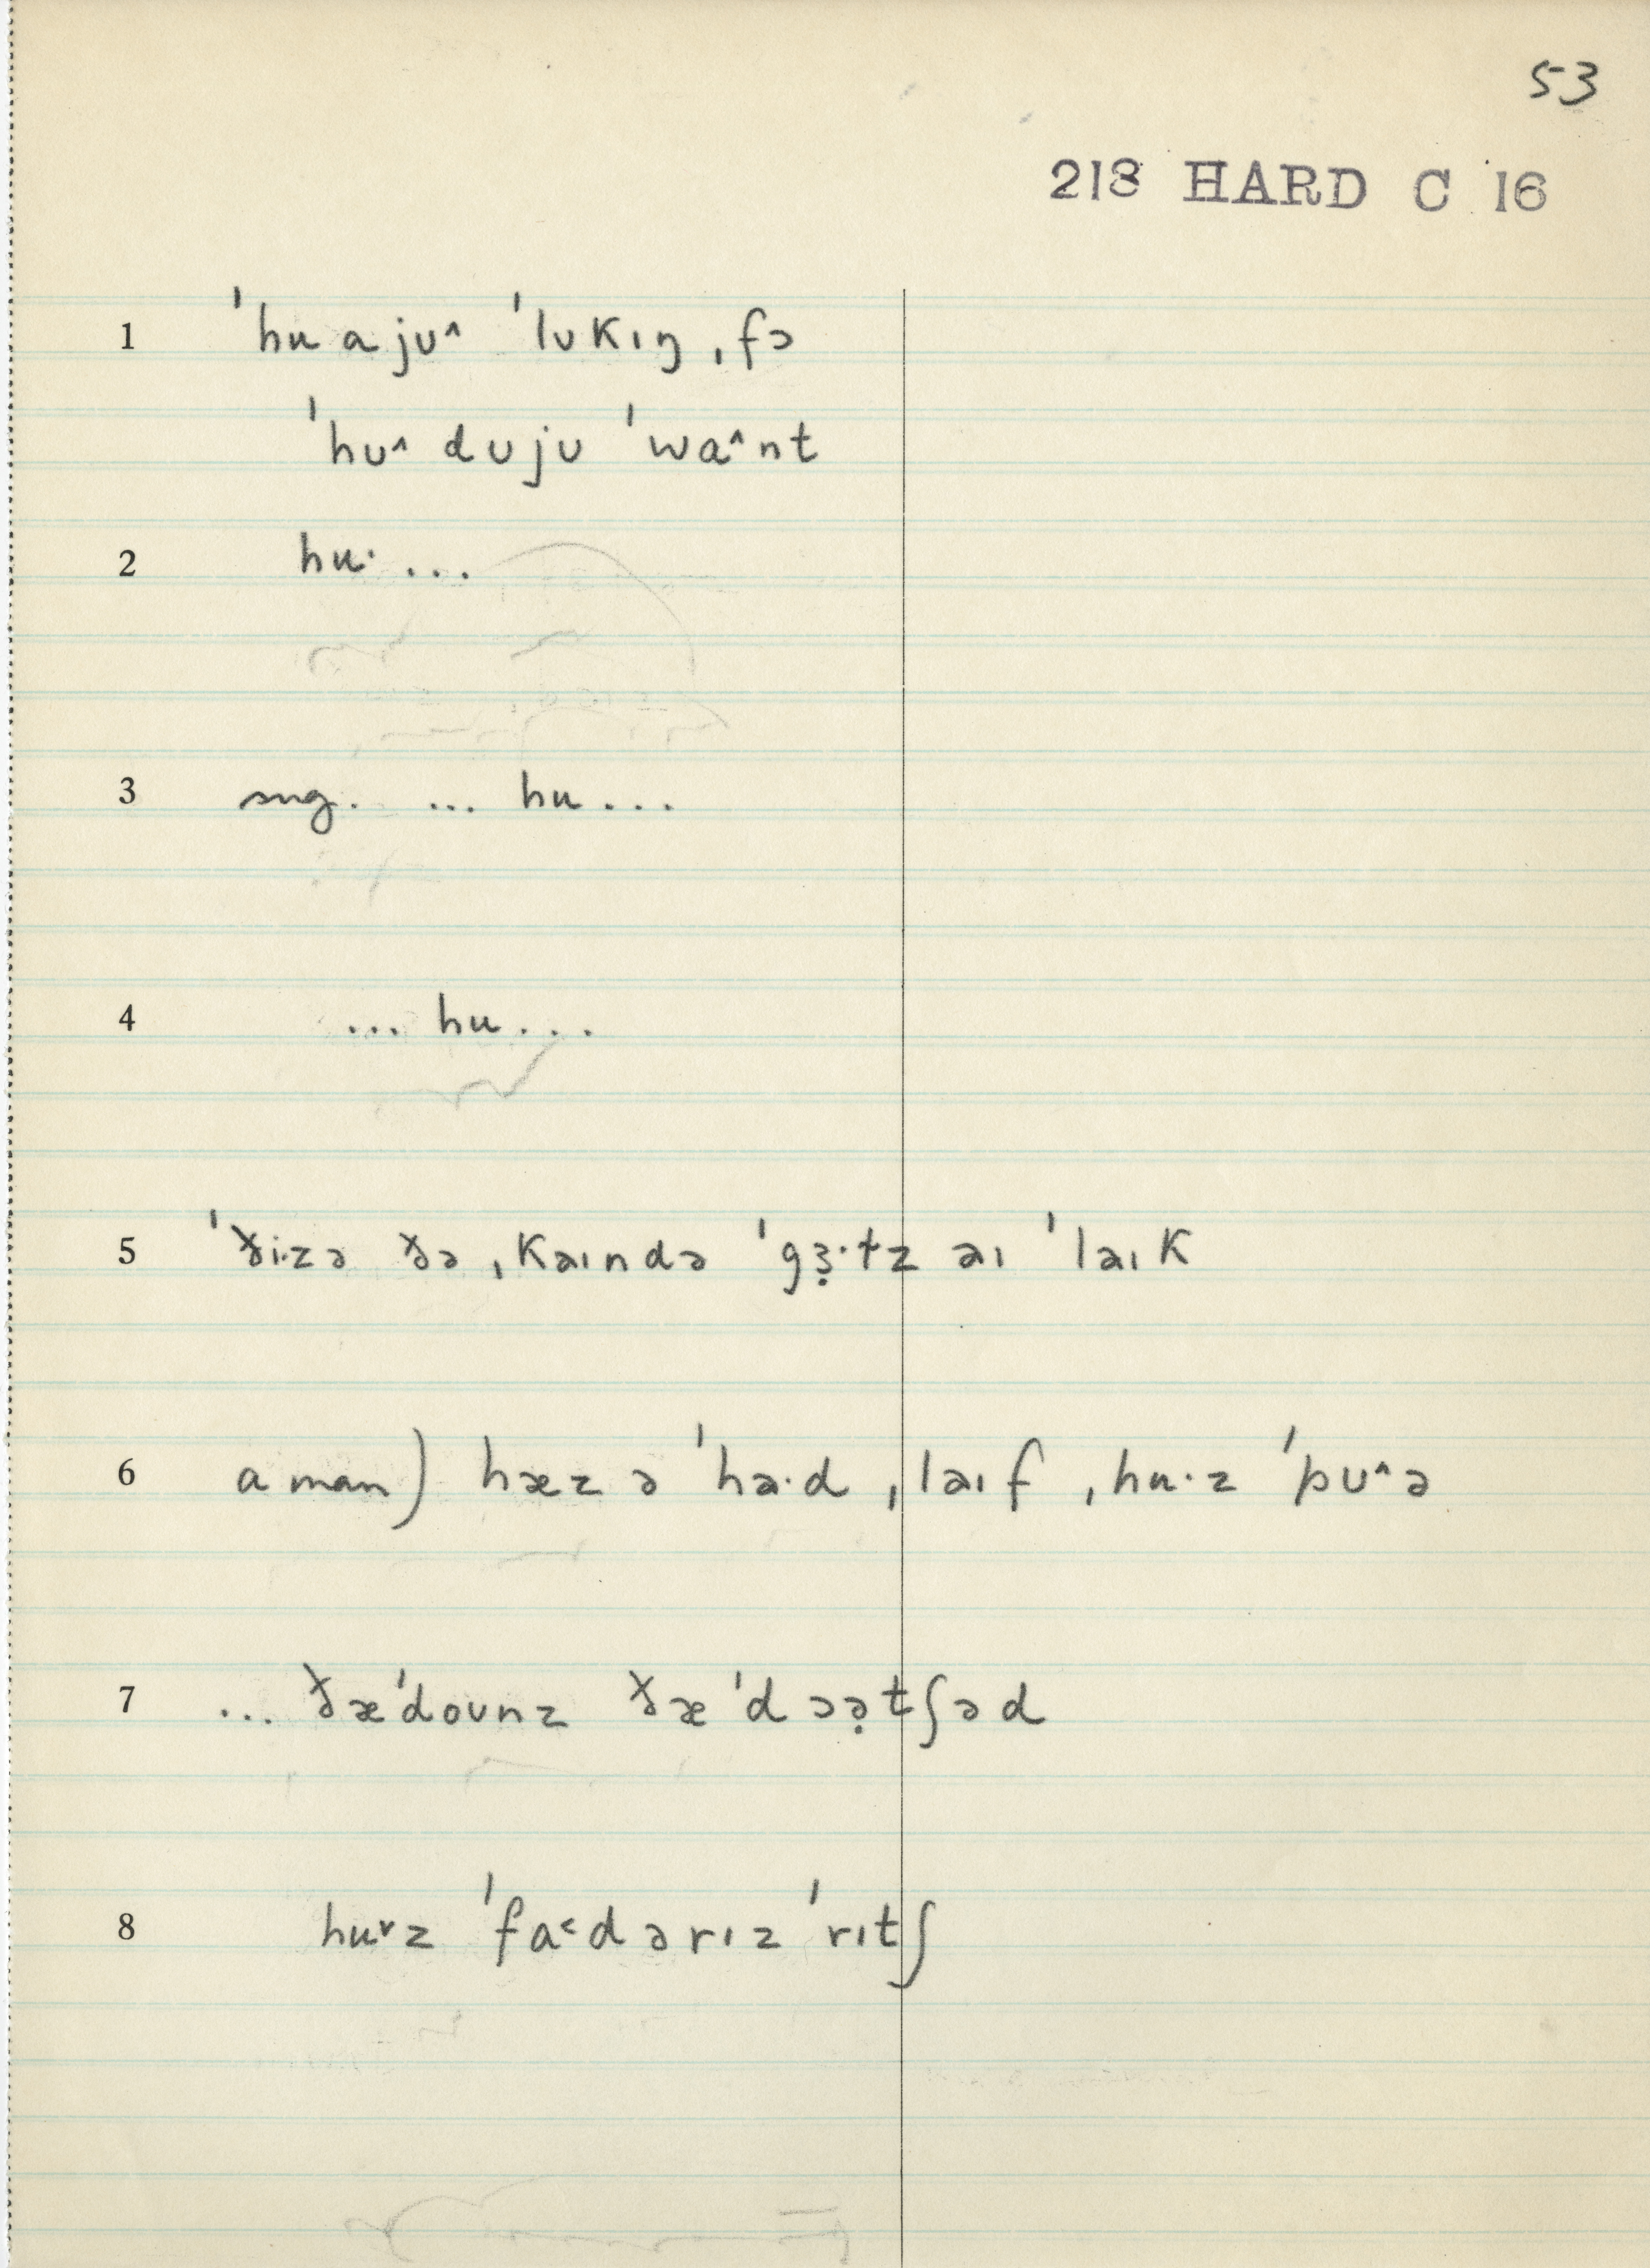 53
218 HARD C 16
1 ˈhu a jʊ^ ˈlʊkɪŋ ˌfɔ
ˈhʊ^ dʊjʊ ˈwɑ^nt
2 hu· ...
3 sug. ... hu ...
4 ... hu ...
5 ˈði·zə ðə ˌkaɪndə ˈgɜ̣·tz aɪ ˈlaɪk
6 a man) hæz ə ˈha·d ˌlaɪf ˌhu·z ˈpʊ^ə
7 ... ðæˈdoʊnz ðæˈdɔə̣tʃəd
8 huˇz ˈfa˂dərɪz ˈrɪtʃ